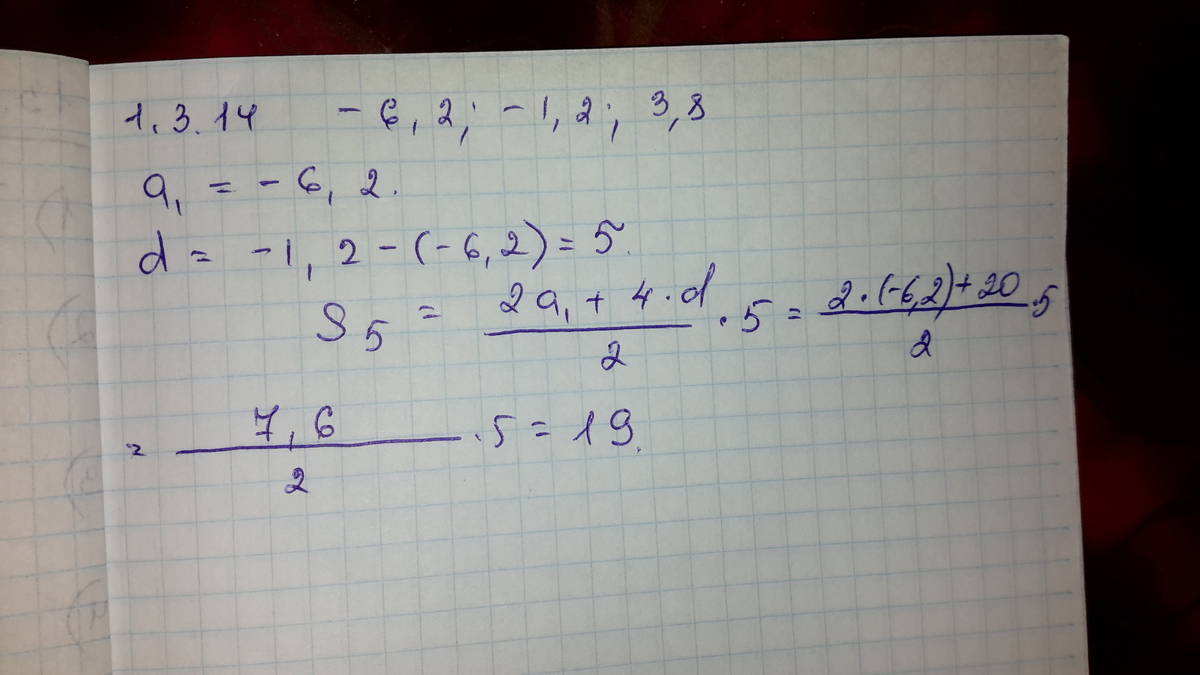 1.3.14 -6,2; -1,2; 3,8
a₁ = -6,2.
d = -1,2-(-6,2)=5.
S₅ = (2a₁ + 4·d)/2 · 5 = (2·(-6,2)+20)/2 ·5
= 7,6/2 ·5 = 19.